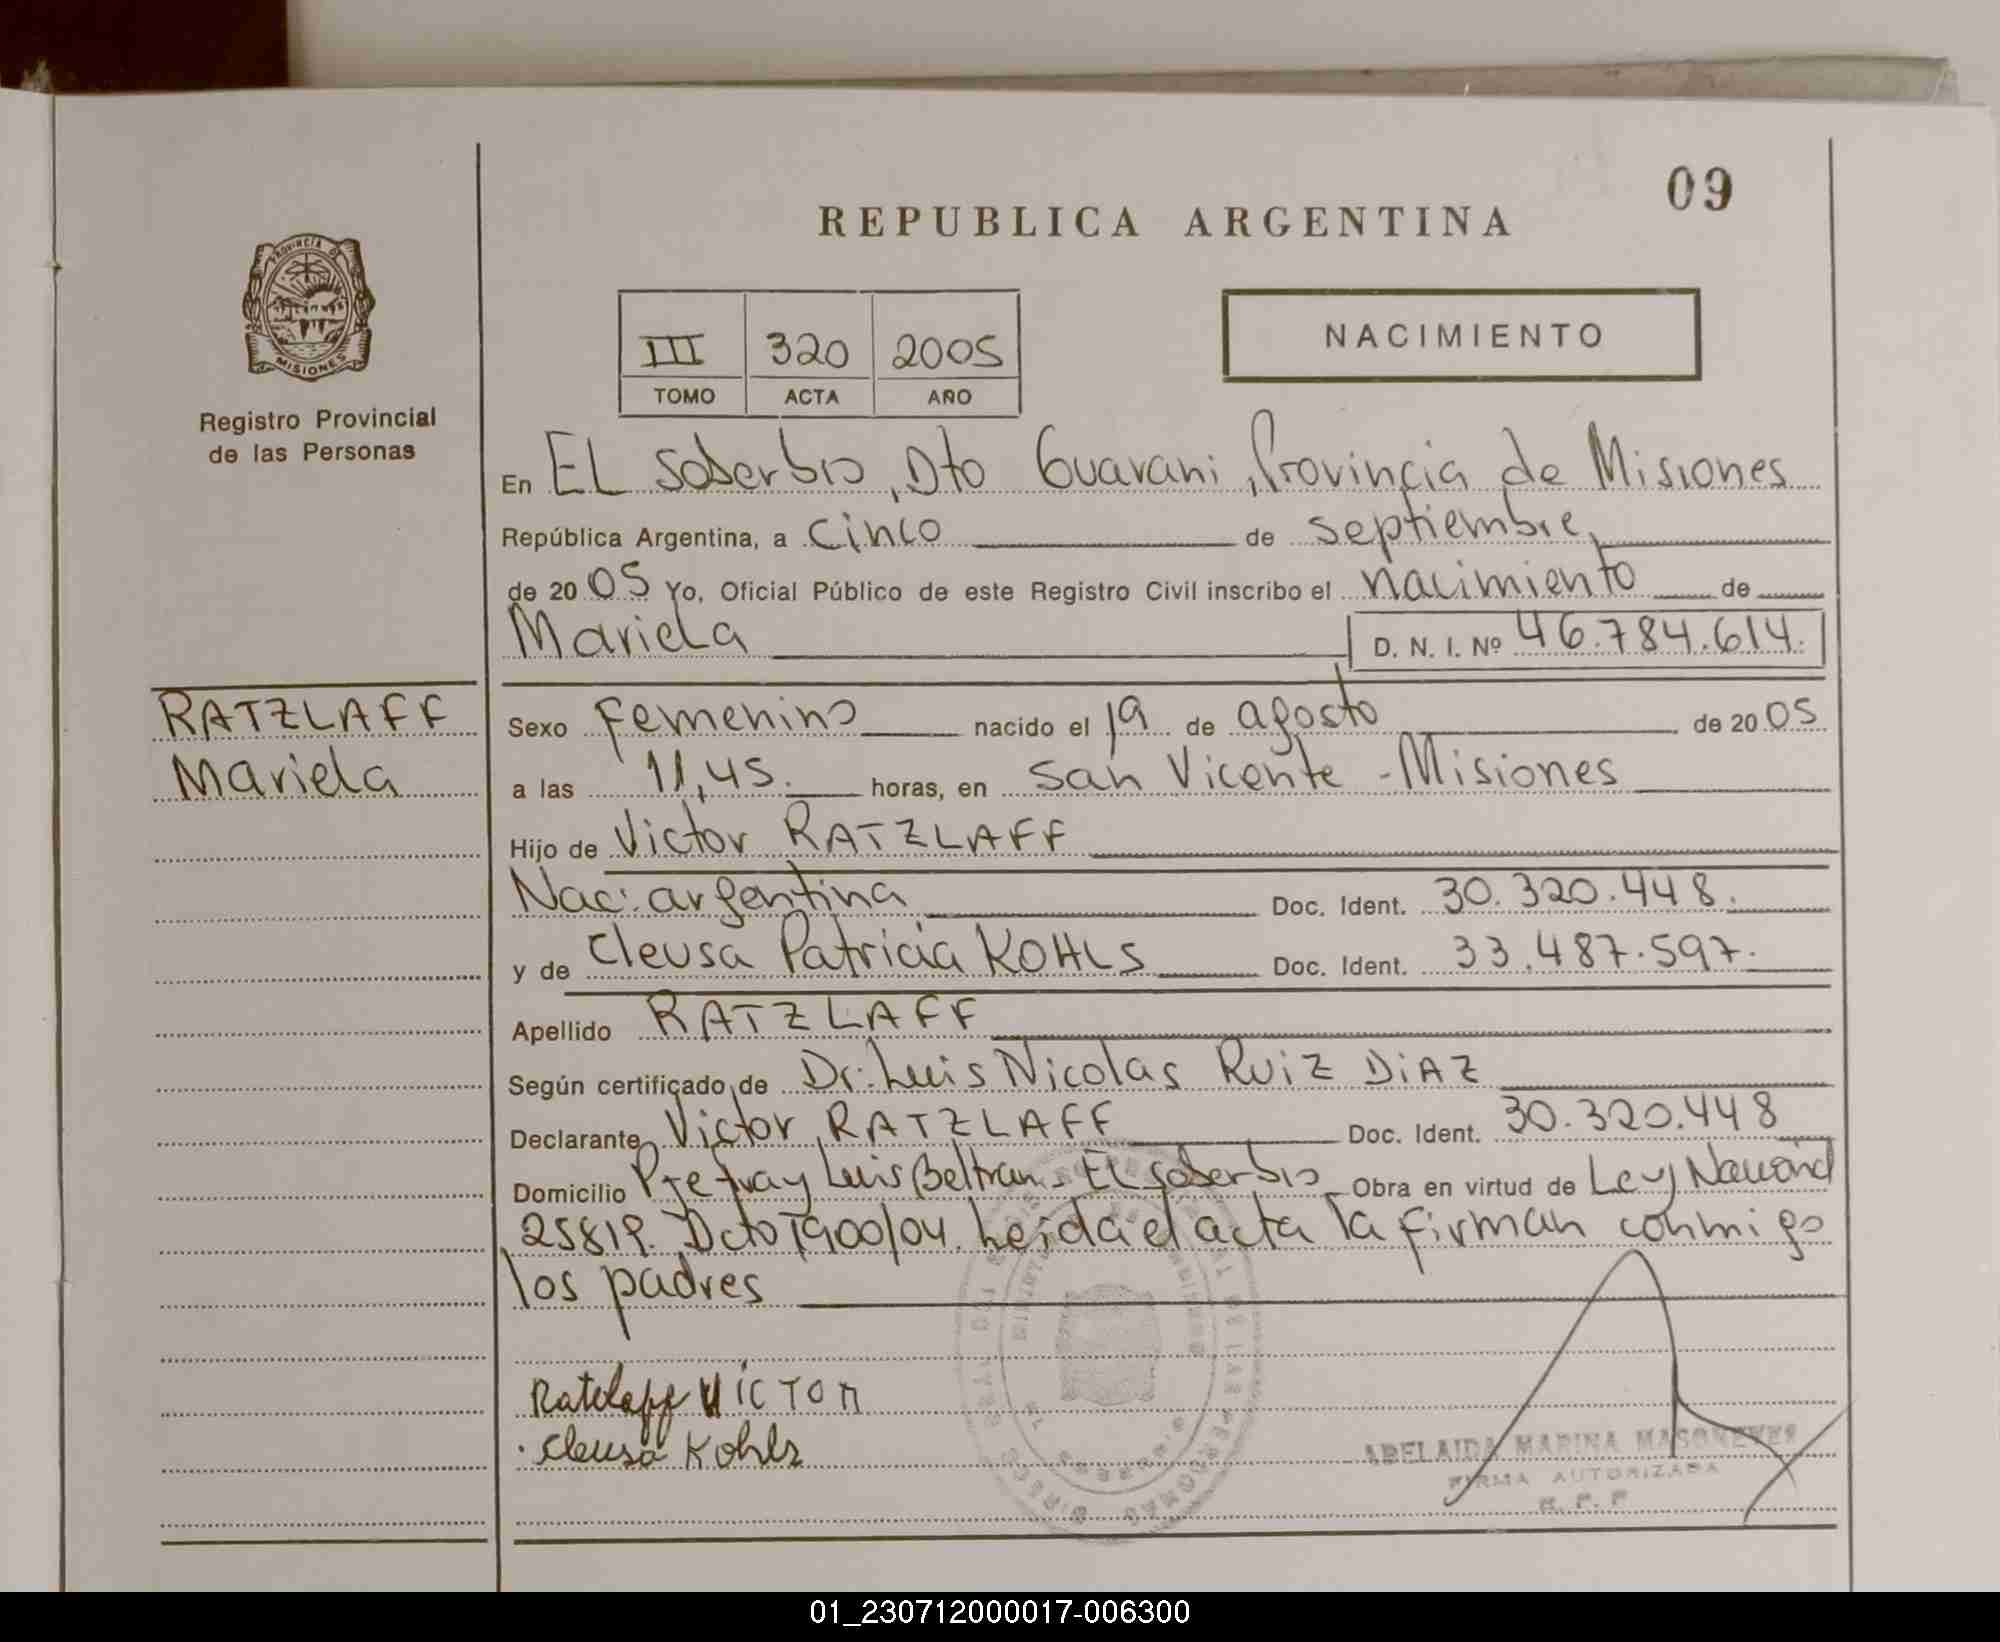 09
REPUBLICA ARGENTINA
PROVINCIA DE
MISIONES
Registro Provincial
de las Personas
III 320 2005
TOMO ACTA AÑO
NACIMIENTO
En EL Soberbio, Dto Guarani, Provincia de Misiones
República Argentina, a cinco de septiembre,
de 2005 Yo, Oficial Público de este Registro Civil inscribo el nacimiento de
Mariela D. N. I. Nº 46.784.614.
RATZLAFF
Mariela
Sexo Femenino nacido el 19 de agosto de 2005
a las 11,45. horas, en San Vicente - Misiones
Hijo de Victor RATZLAFF
Nac: argentina Doc. Ident. 30.320.448.
y de Cleusa Patricia KOHLS Doc. Ident. 33.487.597.
Apellido RATZLAFF
Según certificado de Dr. Luis Nicolas Ruiz DiAZ
Declarante Victor RATZLAFF Doc. Ident. 30.320.448
Domicilio Pje fray Luis Beltran - EL soberbio Obra en virtud de Ley
25819. Dcto 1900/04. Leida el acta la firman conmigo
los padres
Ratzlaff VICTOR
Cleusa Kohls
MARINA
FIRMA AUTORIZADA
R. P. P
01_230712000017-006300